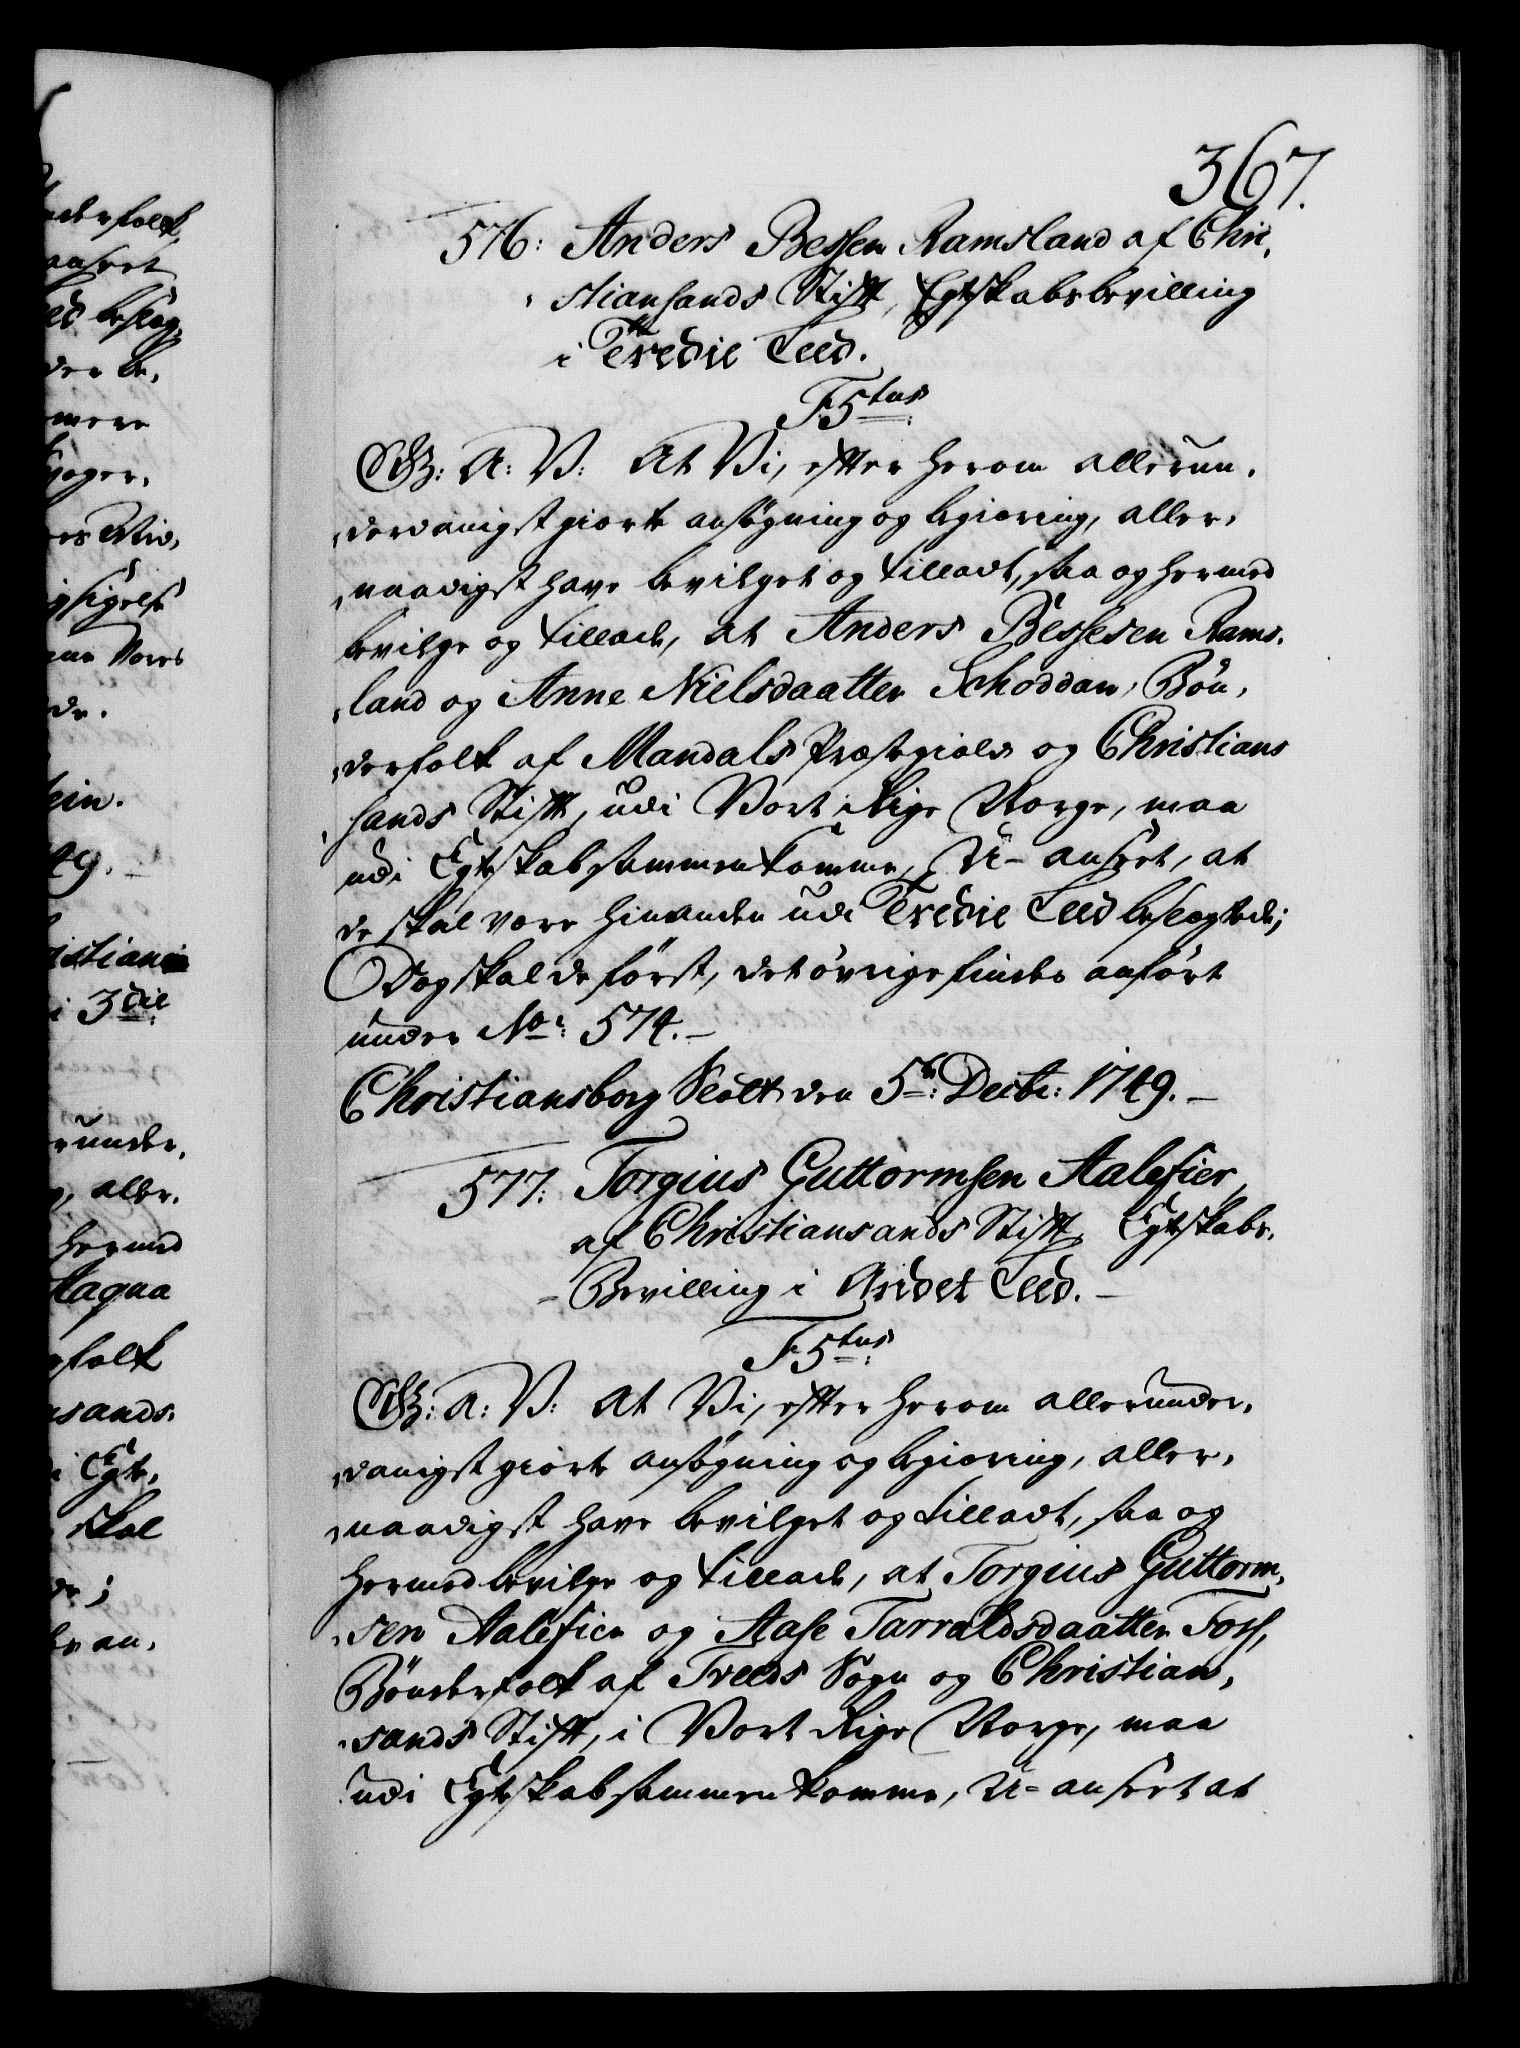 367.
576: Anders Bessen Ramsland af Chri,
stiansands Stift, Egtskabsbevilling
i Tredie Leed.
F. 5tus
G: A: V: At Vi, efter herom allerun,
derdanigst giorte ansøgning og begiering, aller,
naadigst have bevilget og tilladt, saa og hermed
bevilge og tillade, at Anders Bessesen Rams,
land og Anne Nielsdaatter Schoddan, Bøn,
derfolk af Mandals Præstegield og Christians
sands Stift, udi Vort Rige Norge, maa
udi Egteskab sammenkomme, U-anseet, at
de skal være hinanden udi Tredie Leed beslægtede;
Dog skal de først, det øvrige findes anført
under No: 574.-
Christiansborg Slott den 5te: Decbr: 1749.-
577: Torgius Guttormsen Aalefier,
af Christiansands Stift, Egtskabs-
Bevilling i Andet Leed.-
F. 5tus
G: A: V: At Vi, efter herom allerunder,
danigst giorte ansøgning og begiering, aller,
naadigst have bevilget og tilladt, saa og
hermed bevilge og tillade, at Torgius Guttorm,
sen Aalefier og Aase Tarraldsdaatter Foss,
Bønderfolk af Treds Sogn og Christian,
sands Stift, i Vort Rige Norge, maa
udi Egteskab sammenkomme, U-anseet at